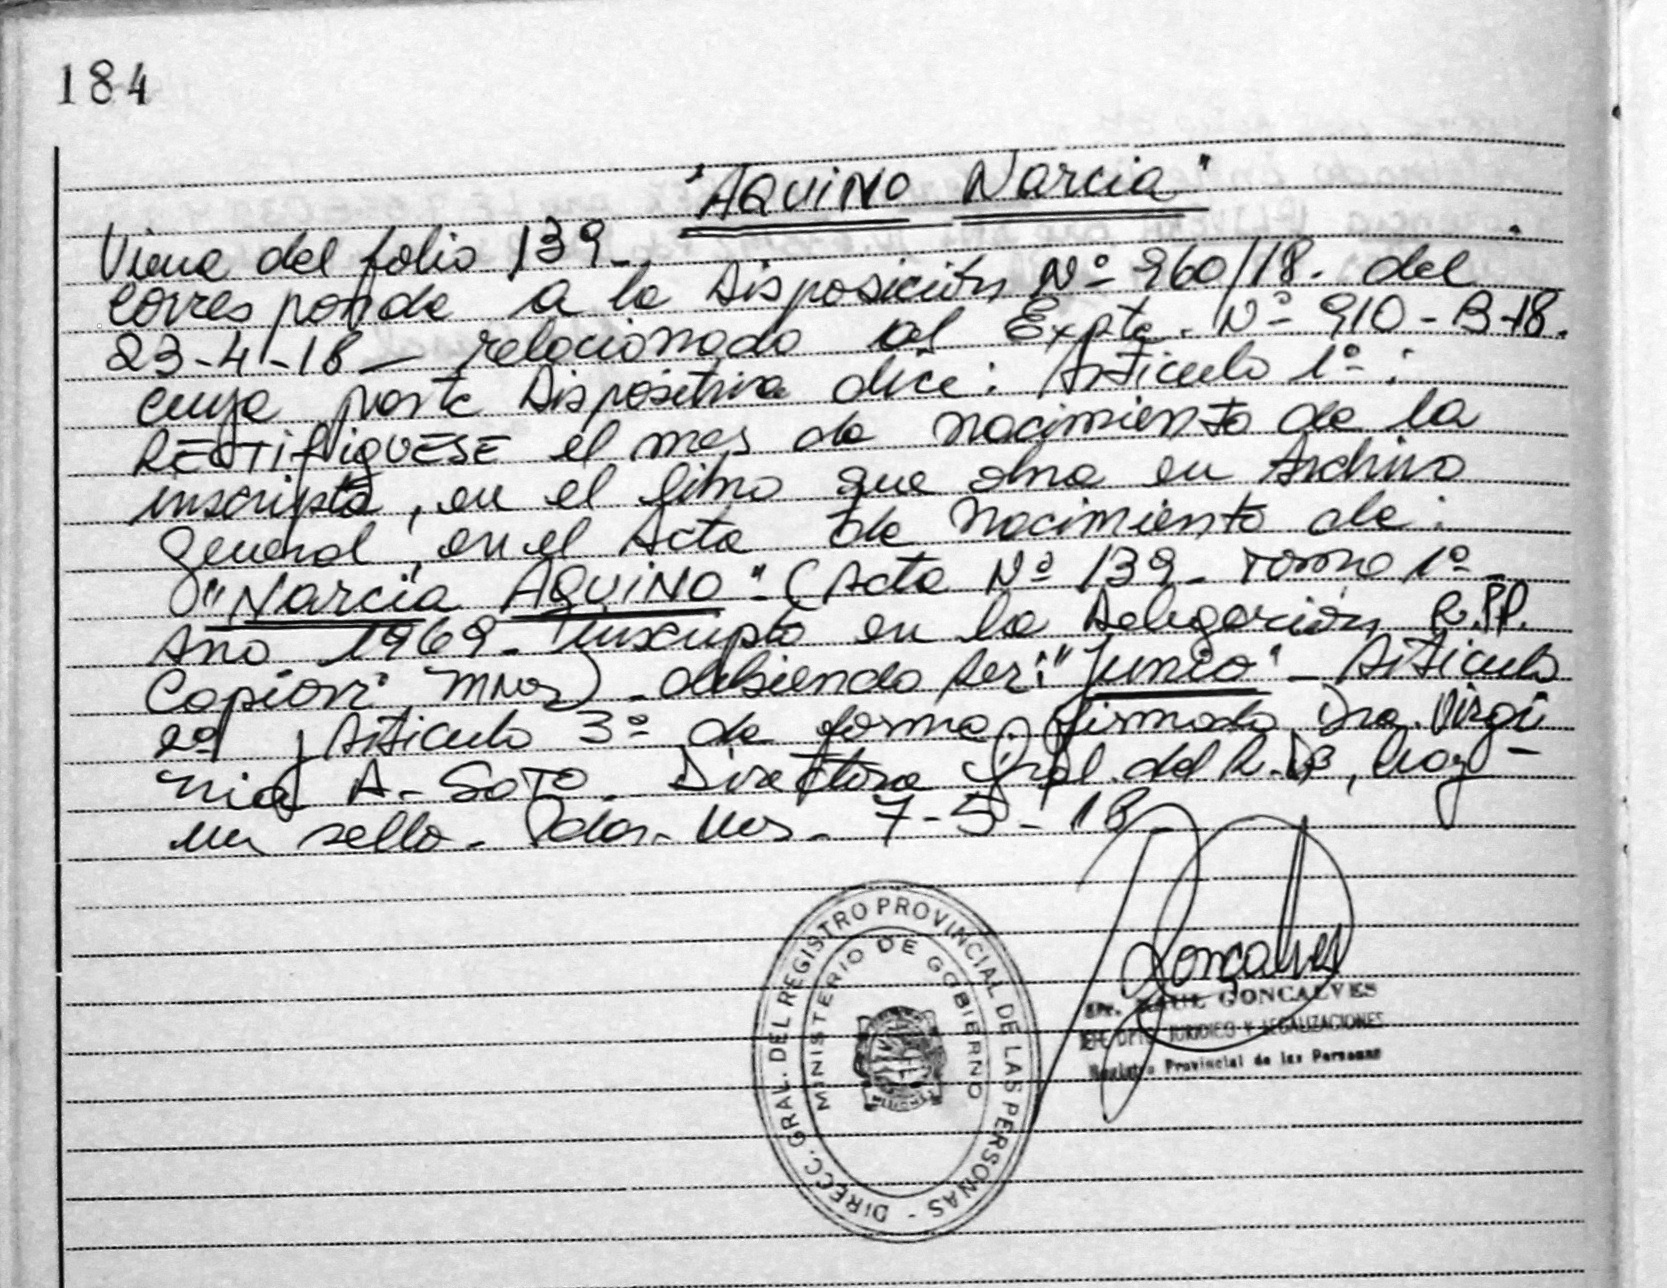 184
"AQUINO Narcia"
Viene del folio 139_
Corresponde a la Disposición Nº 960/18. del
23-4-18_ relacionado al Expte. Nº 910-B-18.
cuya parte Dispositiva dice: Artículo 1º:
RECTIFIQUESE el mes de nacimiento de la
inscripta, en el libro que obra en Archivo
General, en el Acta de Nacimiento de:
"Narcia AQUINO"- (Acta Nº 139_ Tomo 1º_
Año 1969_ Inscripta en la Delegación R.PP.
Capiovi Mnes)_ debiendo ser: "Junio"_ Artículo
2º y Artículo 3º de forma. firmado Dra. Virgi
nia A. SOTO_ Directora Gral. del R.PP, hay
un sello_ Pdas. Mnes_ 7-5-18
DIRECC. GRAL. DEL REGISTRO PROVINCIAL DE LAS PERSONAS -
MINISTERIO DE GOBIERNO
MISIONES
Goncalves
GONCALVES
JEFE DPTO. JURIDICO Y LEGALIZACIONES
Registro Provincial de las Personas